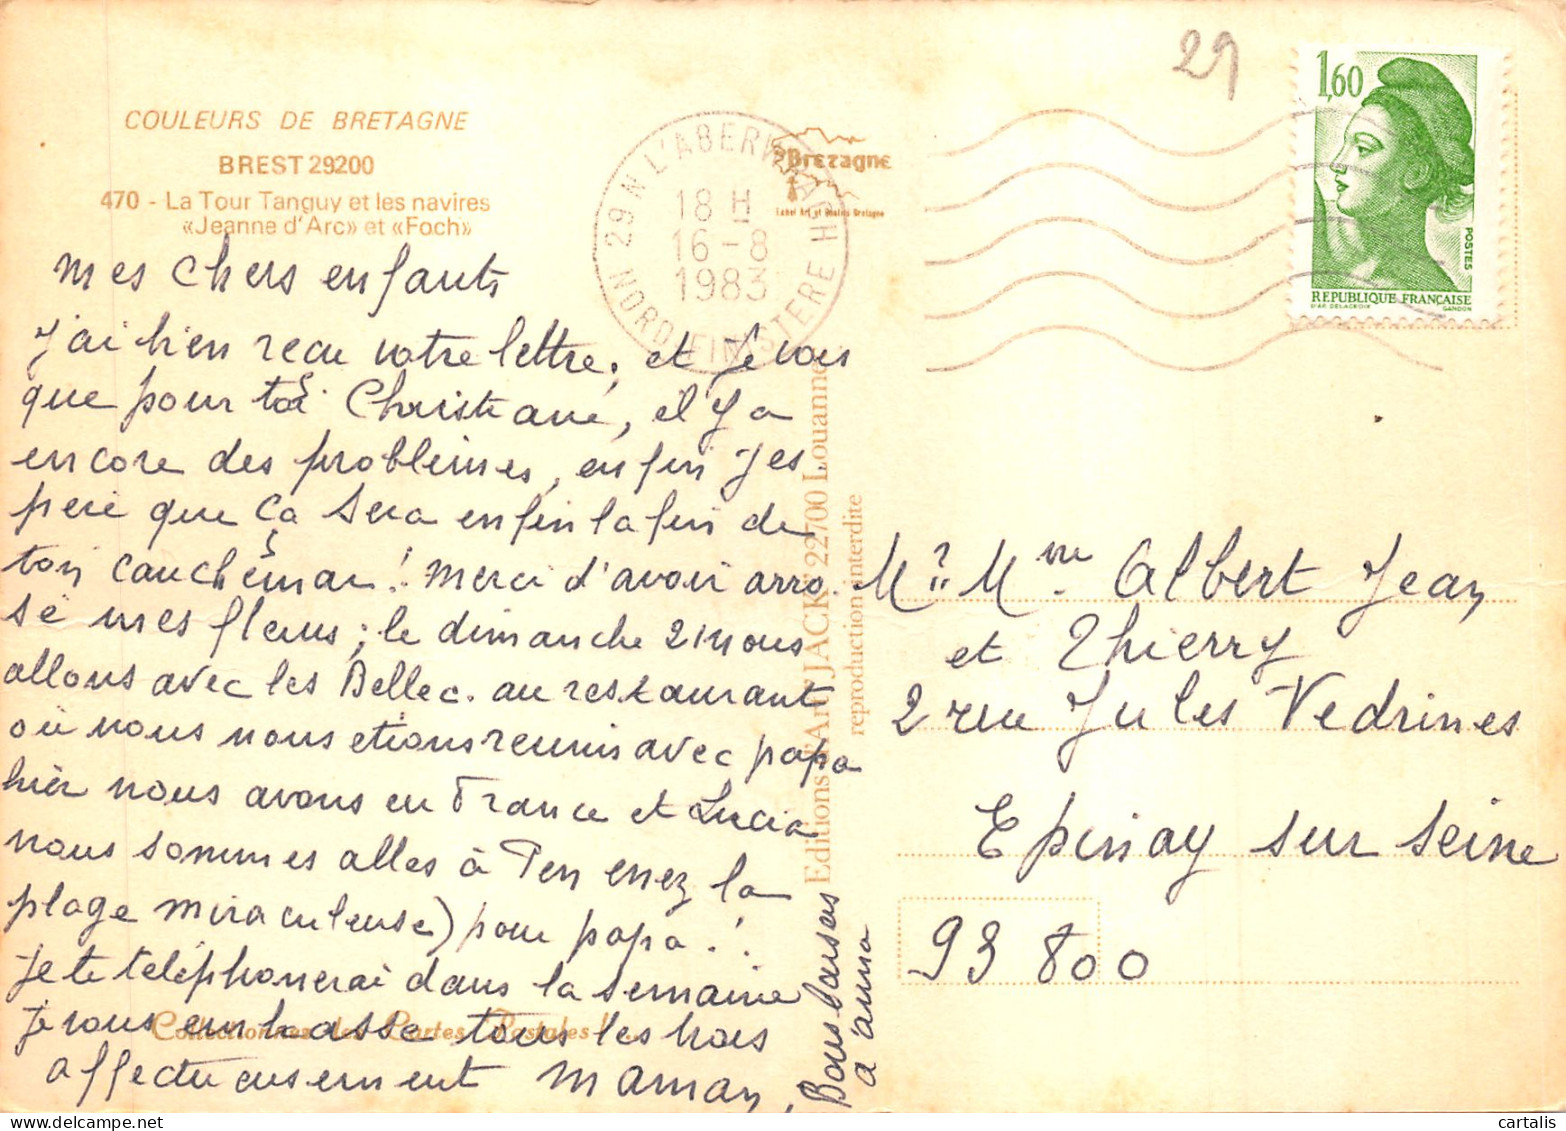 COULEURS DE BRETAGNE
BREST 29200
470 - La Tour Tanguy et les navires
«Jeanne d'Arc» et «Foch»
29 N L'ABERWRAC'H
18 H
16-8
1983
NORD FINISTERE
Bretagne
29
1,60
POSTES
REPUBLIQUE FRANÇAISE
D'AP. DELACROIX GANDON
mes chers enfants
J'ai bien reçu votre lettre, et je vois
que pour toi Christiane, il y a
encore des problèmes, enfin j'es
père que ça sera enfin la fin de
ton cauchemar! Merci d'avoir arro-
sé mes fleurs; le dimanche 21 nous
allons avec les Bellec. au restaurant
où nous nous etions reunis avec papa
hier nous avons eu France et Lucia
nous sommes allés à Penenez la
plage miraculeuse) pour papa.!
Je te téléphonerai dans la semaine
Je vous embrasse tous les trois
affectueusement Maman,
Bons baisers
à anna
Collectionnez les Cartes Postales !...
Editions d'Art JACK 22700 Louannec
reproduction interdite
Mr Mme Albert Jean
et Thierry
2 rue Jules Vedrines
Epinay sur Seine
93 800
cartalis